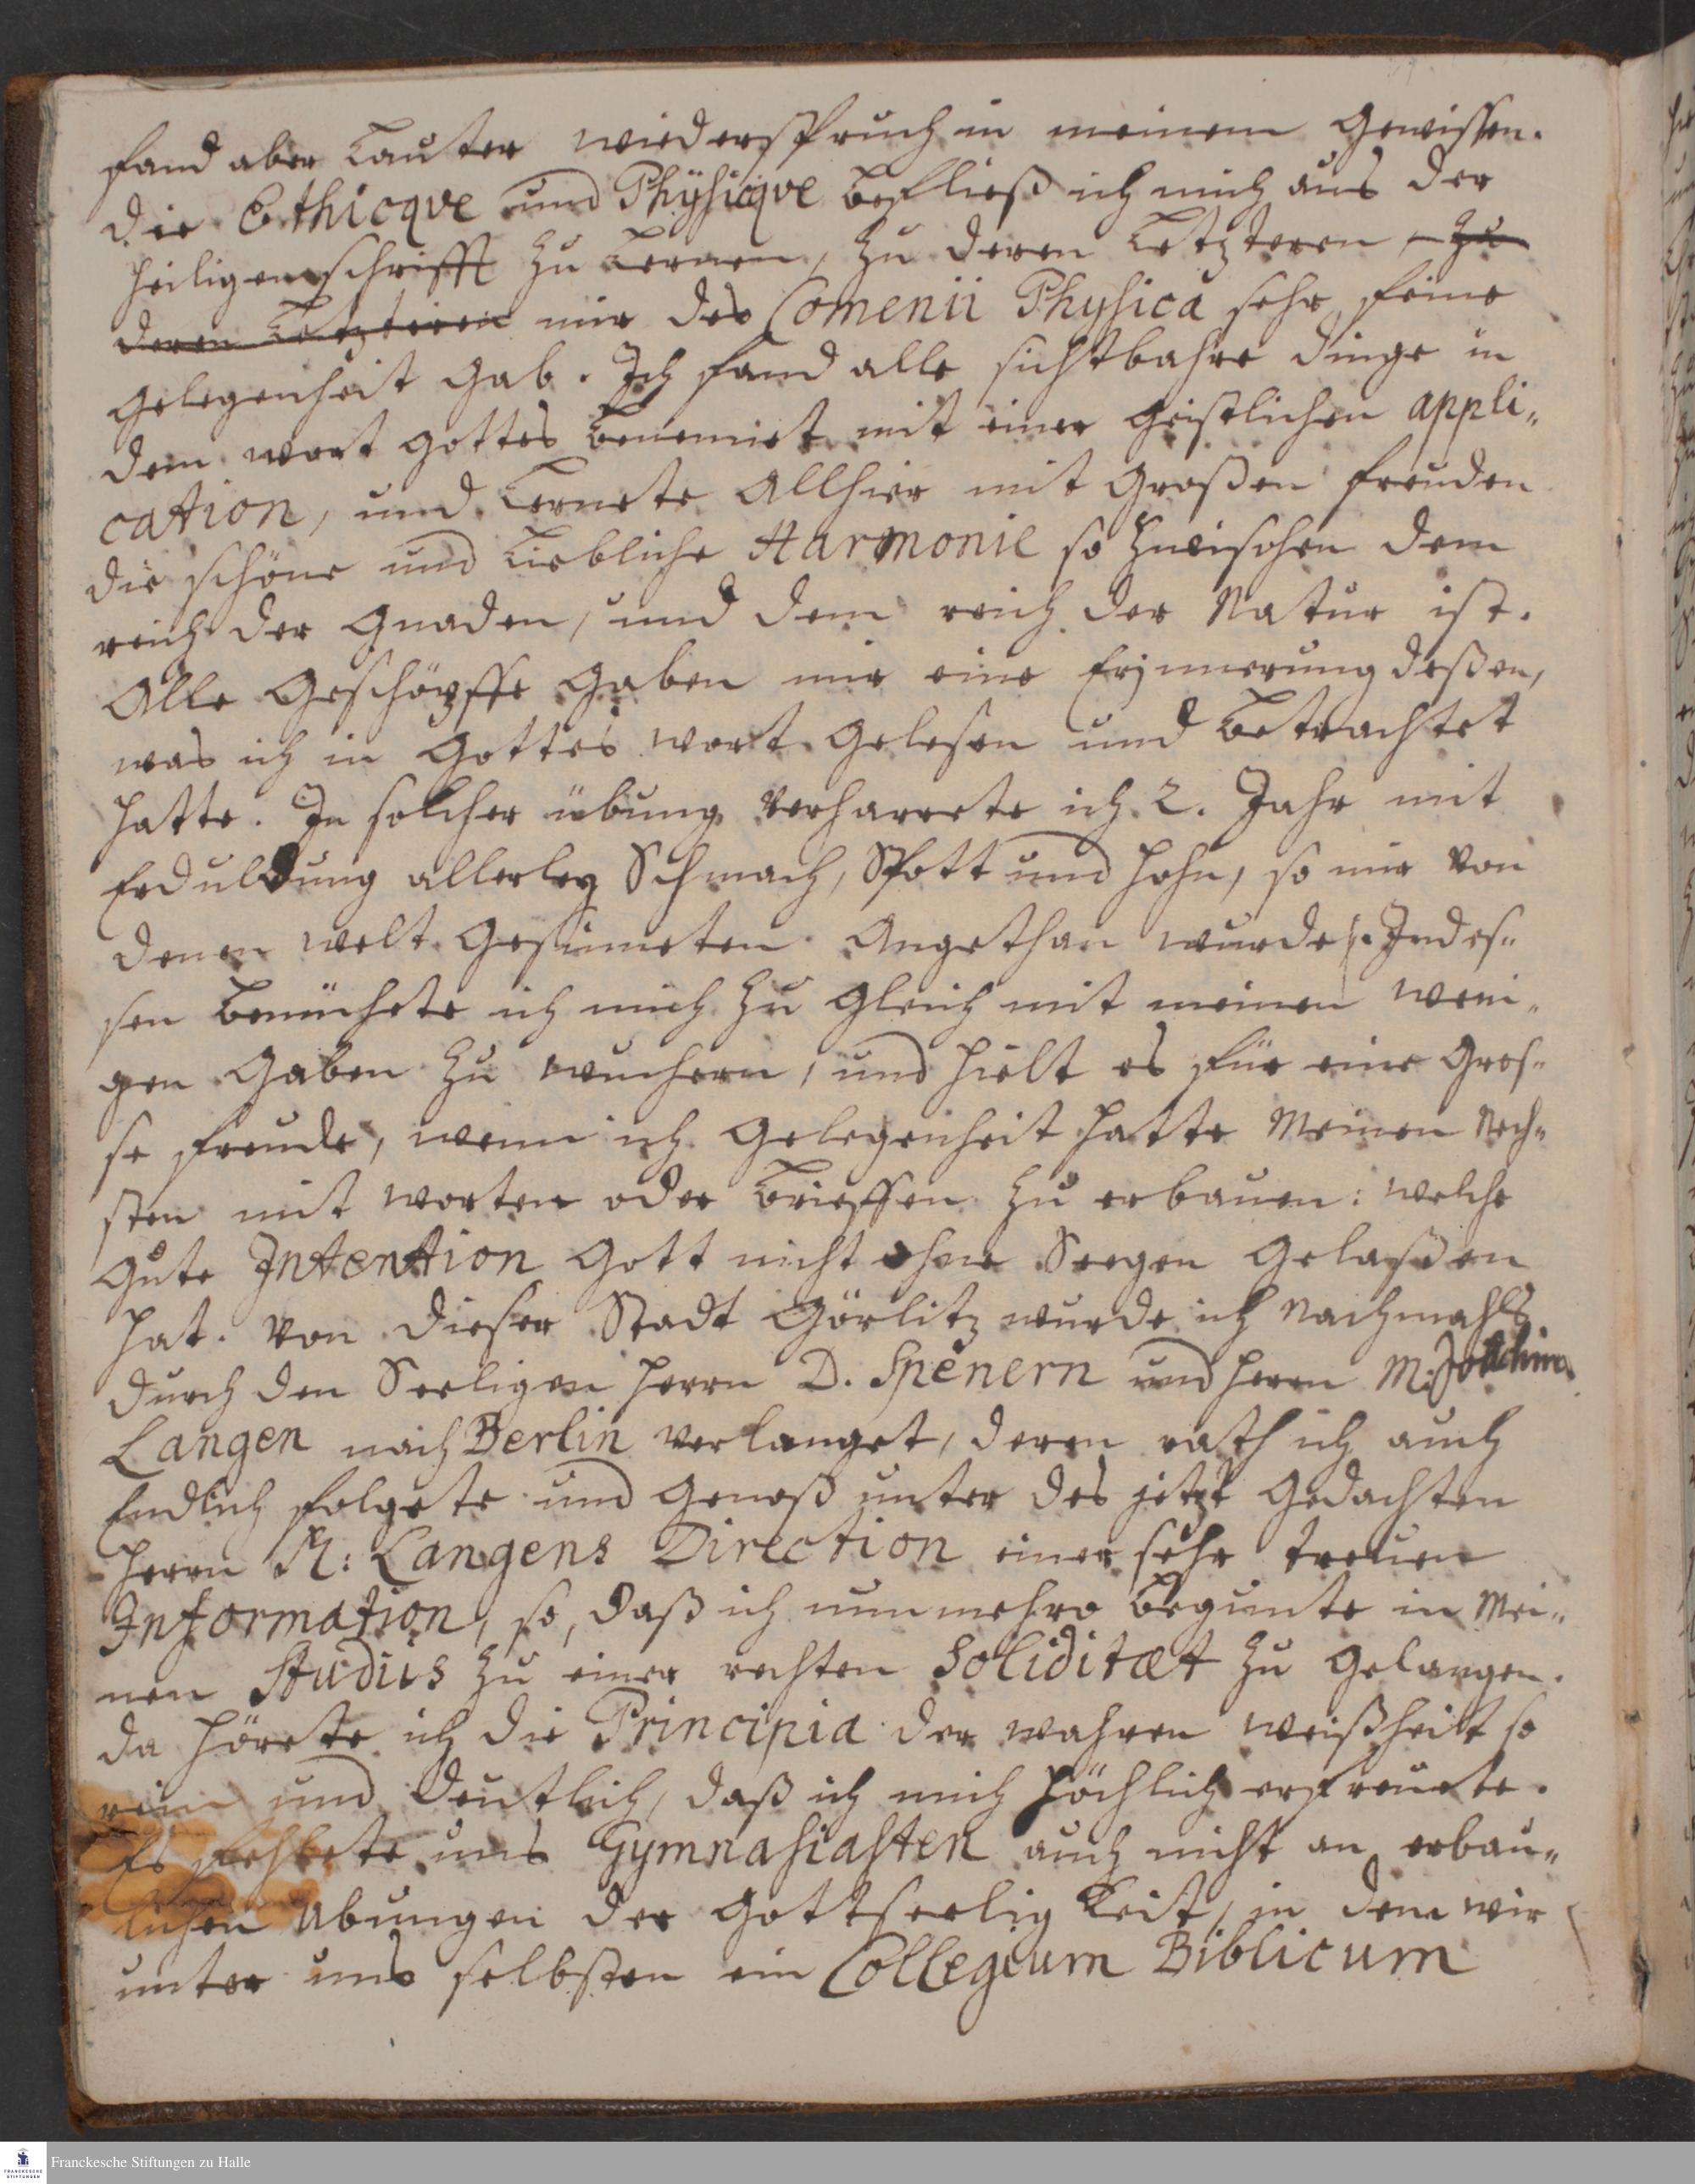 fand aber Lauter wiederspruch in meinem Gewissen.
die Ethicqve und Physicqve befließ ich mich aus der
heiligen schrifft zu Lernen, zu deren Letzteren, zu
deren Letzteren mir des Comenii Physica sehr feine
gelegenheit gab. Ich fand alle sichtbahre dinge in
dem wort Gottes benennet mit einer geistlichen appli„
cation, und Lernete Allhier mit Großen freuden
die schöne und Liebliche Harmonie so zwischen dem
reich der Gnaden, und dem reich der Natur ist.
Alle Geschöpffe Gaben mir eine Erjnnerung deßen,
was ich in Gottes wort gelesen und Betrachtet
hatte. In solcher übung verharrete ich 2. Jahr mit
Erduldung allerley Schmach, Spott und Hohn, so mir von
denen welt Gesinneten Angethan wurde. Indes„
sen bemühete ich mich zu Gleich mit meinen weni„
gen Gaben zu wuchern, und hielt es für eine Gros„
se freude, wenn ich Gelegenheit hatte Meinen Nech„
sten mit worten oder Brieffen zu erbauen: welche
Gute Intention Gott nicht ohne Seegen Gelaßen
hat. Von dieser Stadt Görlitz wurde ich Nachmahls
durch den Seeligen Herrn D. Spenern und Herrn M. Joachim
Langen nach Berlin verlanget, deren rath ich auch
Endlich folgete und Genoß unter des jetzt Gedachten
Herrn M: Langens Direction einer sehr treuen
Information, so, daß ich nunmehro begunte in Mei„
nen Studiis zu einer rechten Soliditæt zu Gelangen.
da hörete ich die Principia der wahren weißheit so
rein und deutlich, daß ich mich höchlich erfreuete.
Es fehlete uns Gymnasiasten auch nicht an erbau„
lichen Ubungen der Gottseeligkeit, in dem wir
unter uns selbsten ein Collegium Biblicum
Franckesche Stiftungen zu Halle
FRANCKESCHE STIFTUNGEN